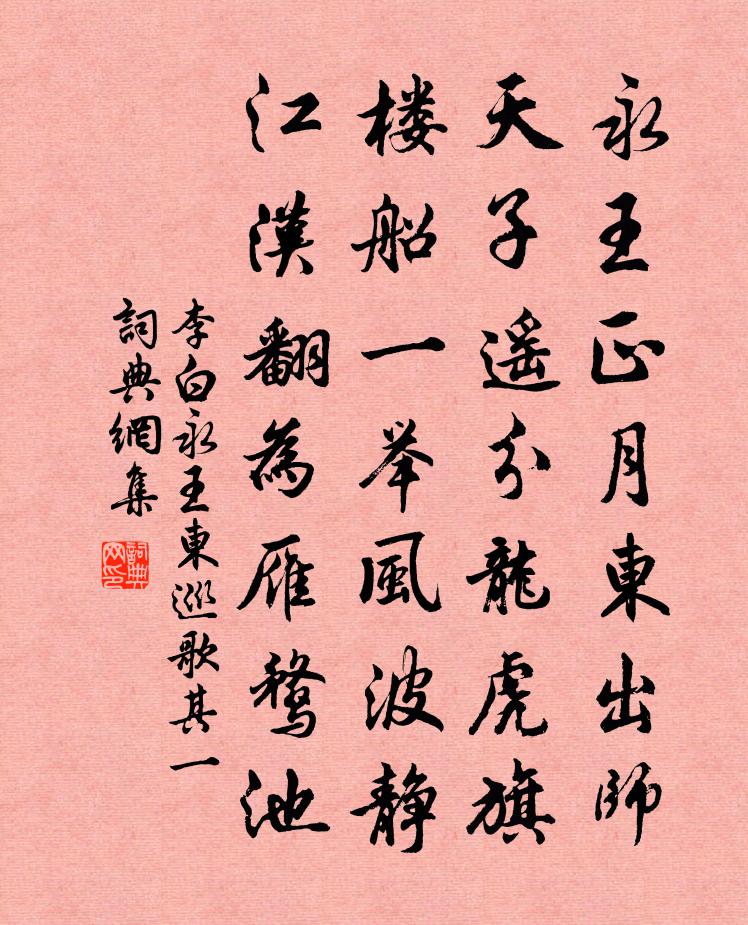 永王正月東出師
天子遥分龍虎旗
楼船一举風波静
江漢翻為雁鶩池
李白永王東巡歌其一
詞典網集
詞典網印